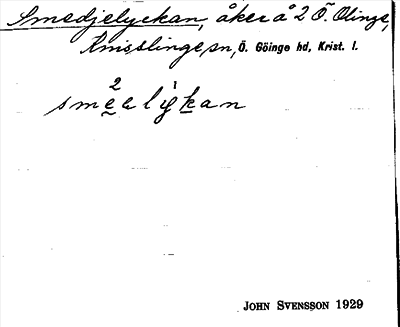 Smedjelyckan, åker å 2 Ö. Olinge,
Knisslinge sn, Ö. Göinge hd, Krist. l.
JOHN SVENSSON 1929